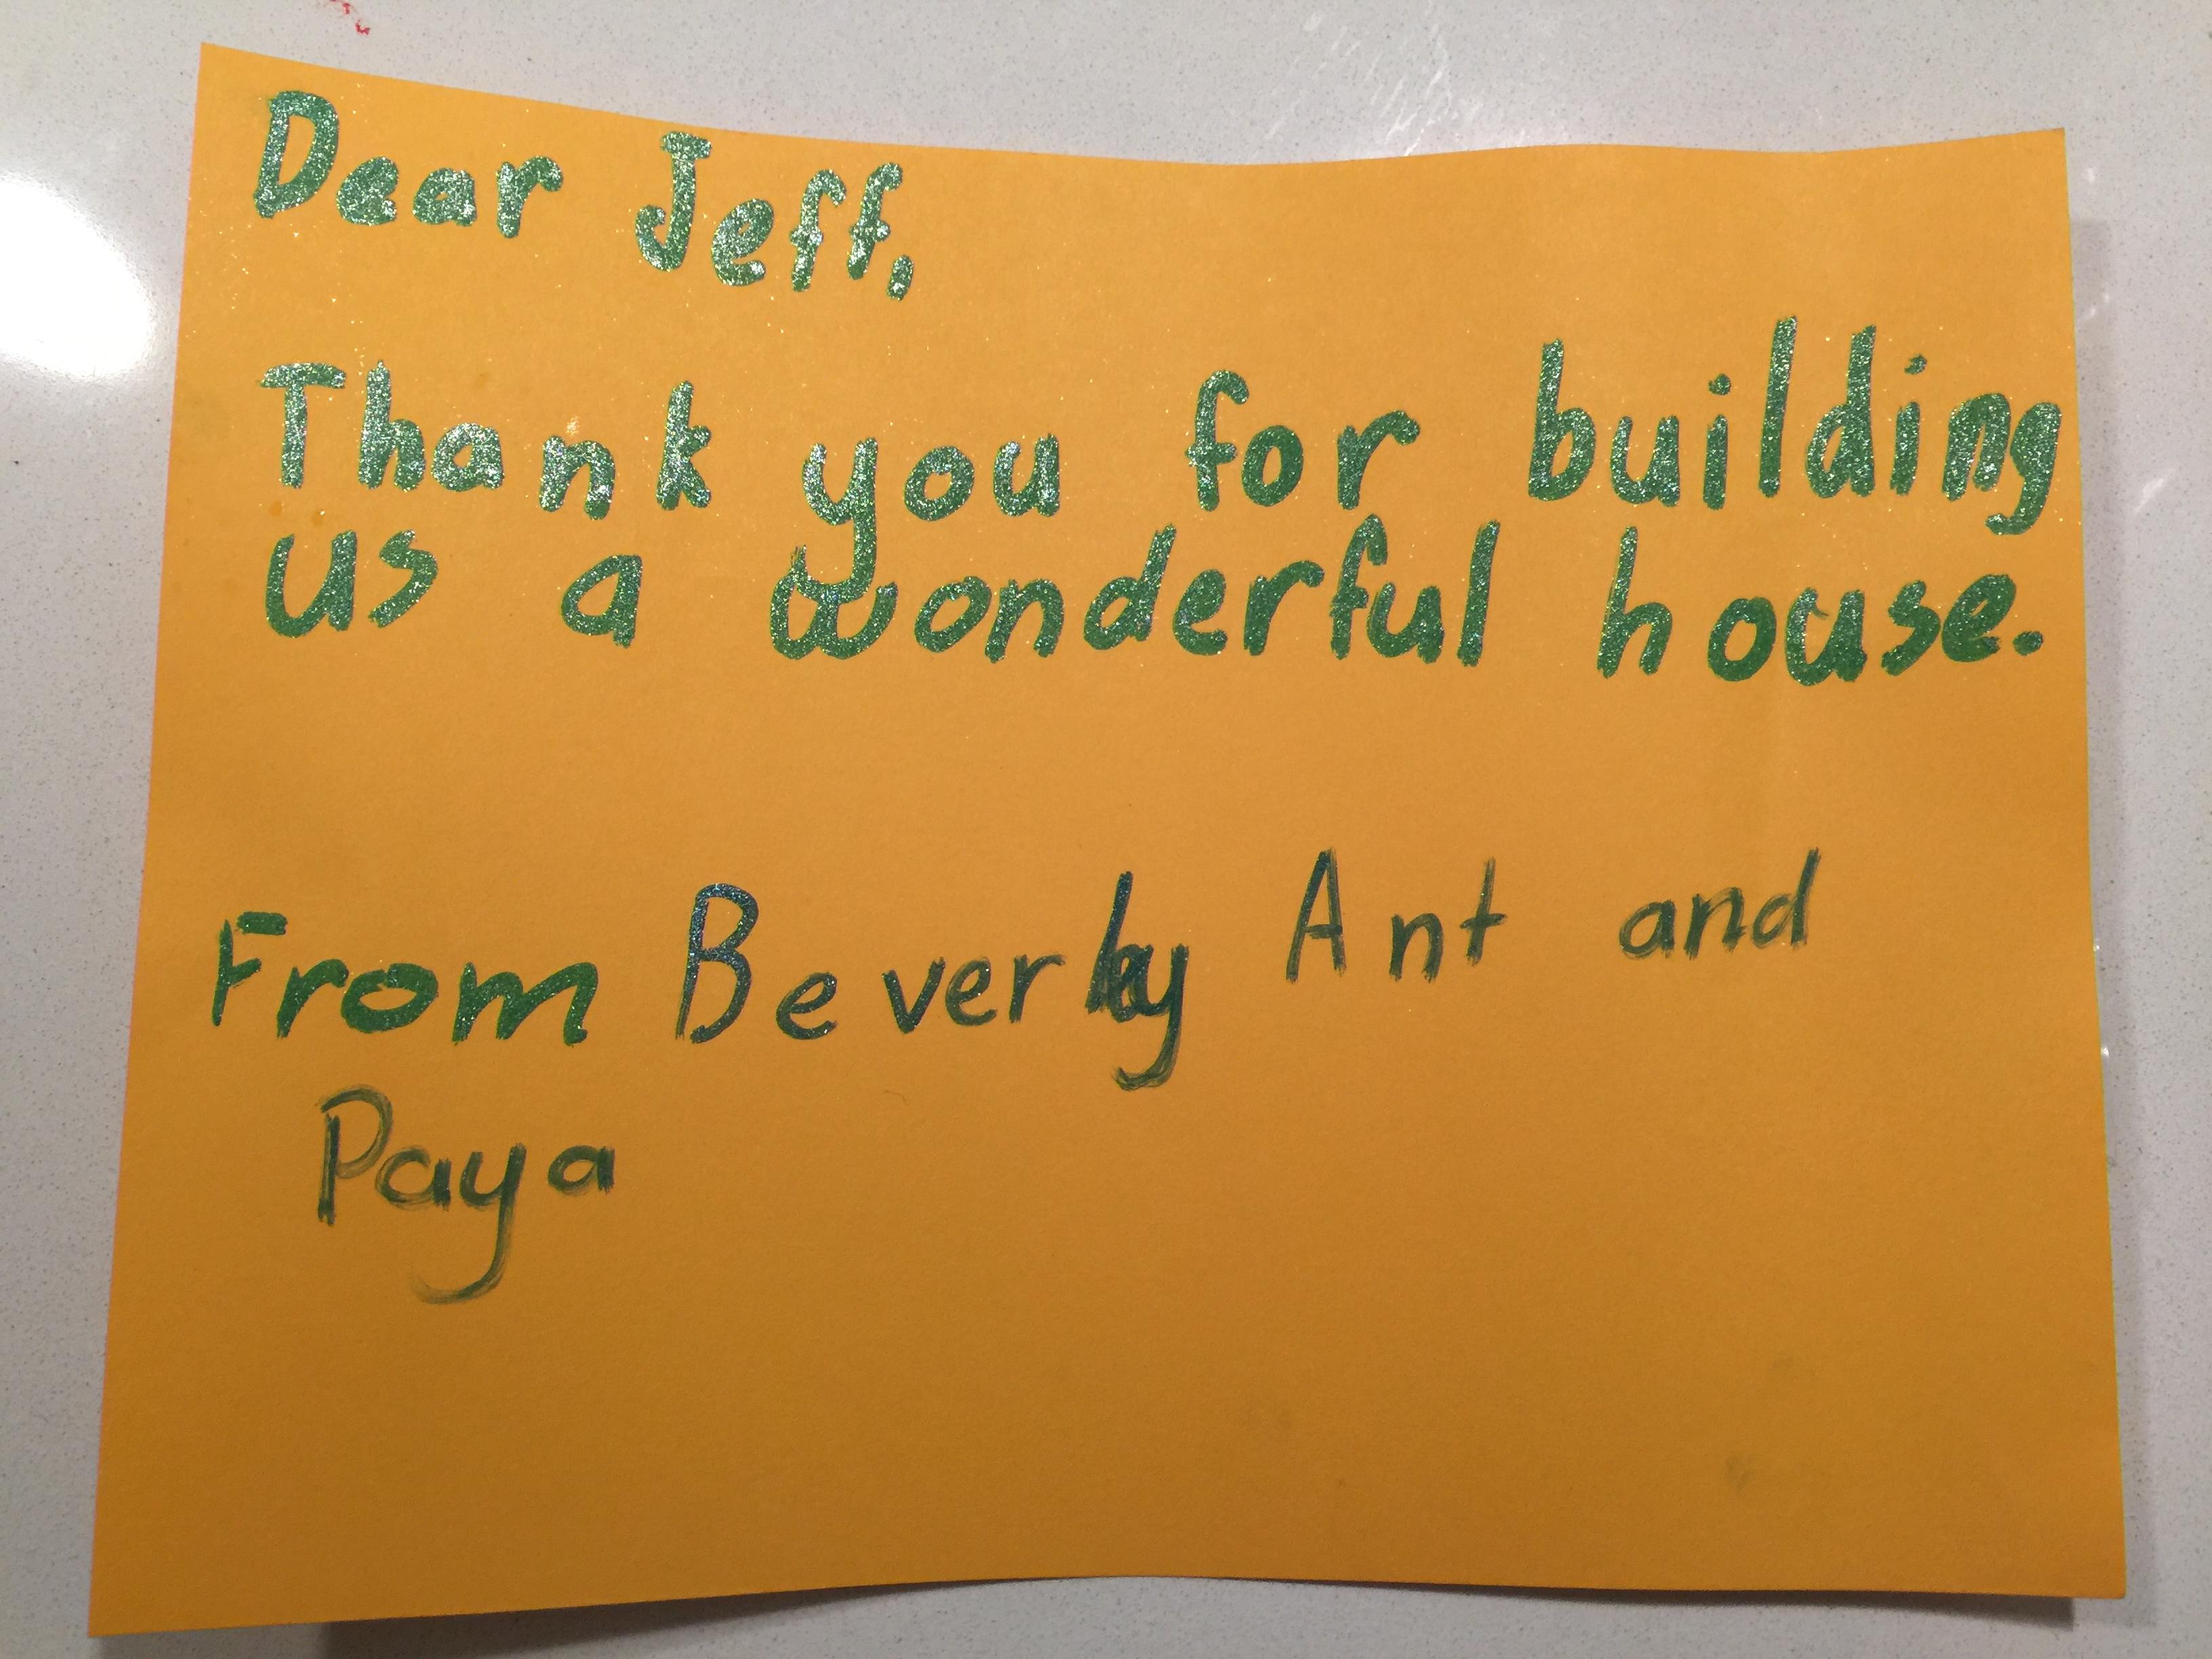 Dear Jeff,
Thank you for building
us a wonderful house.
From Beverley Ant and
Paya